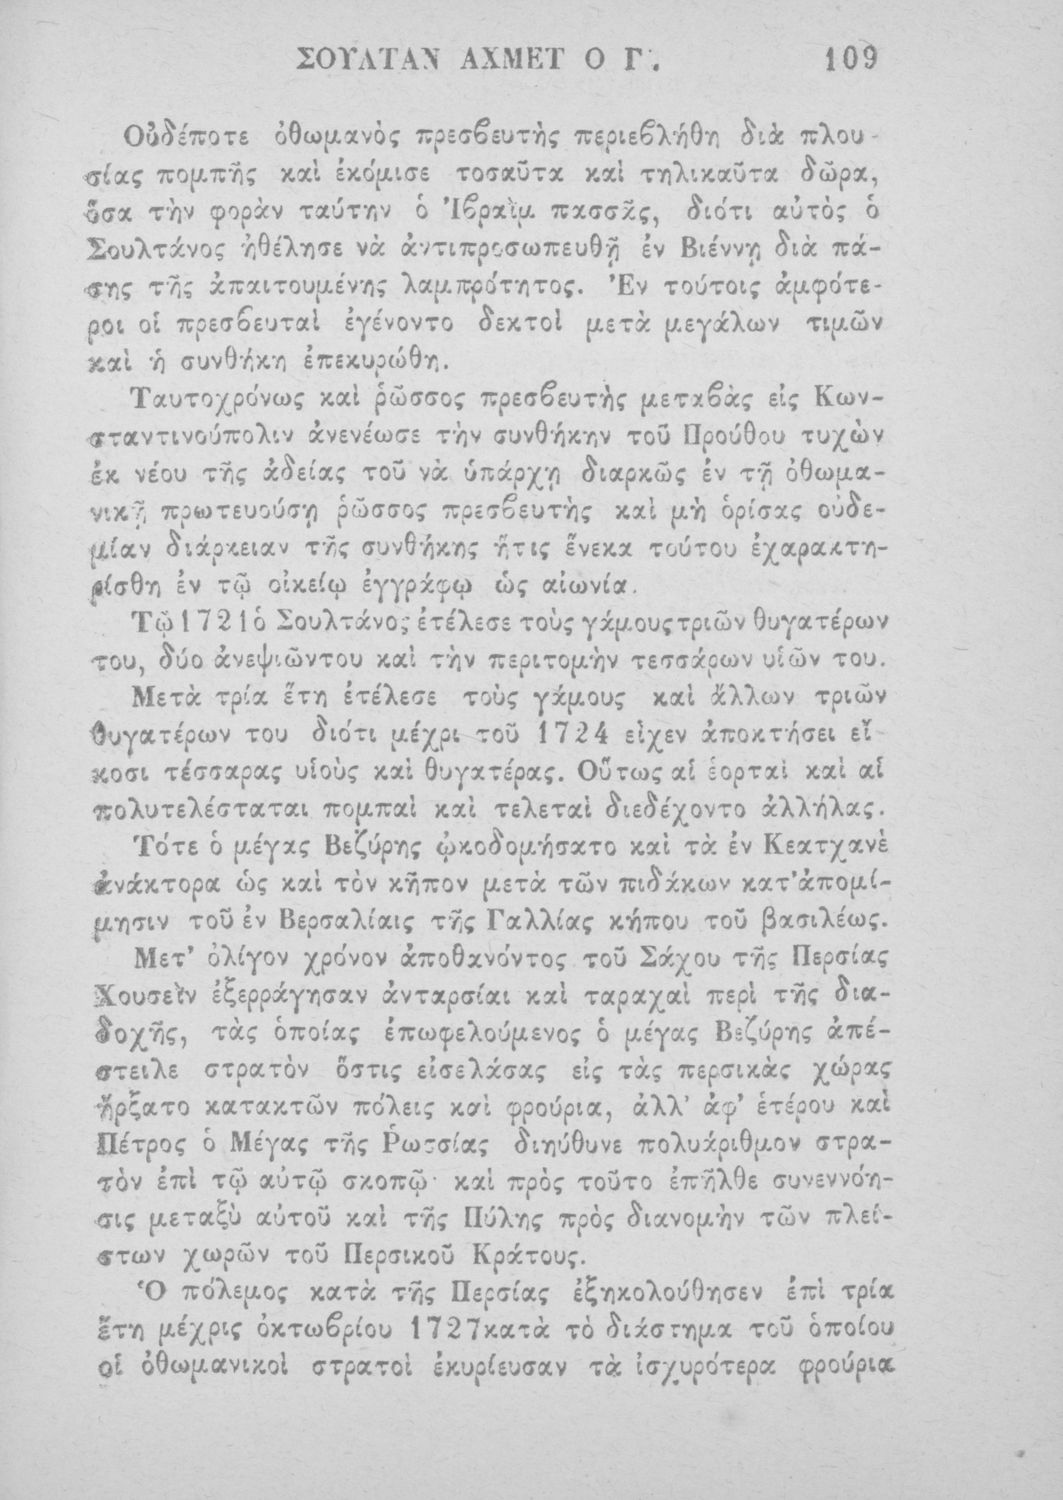 ΣΟΥΛΤΑΝ ΑΧΜΕΤ Ο Γ΄. 109
Οὐδέποτε ὀθωμανὸς πρεσβευτὴς περιεβλήθη διὰ πλου-
σίας πομπῆς καὶ ἐκόμισε τοσαῦτα καὶ τηλικαῦτα δῶρα,
ὅσα τὴν φορὰν ταύτην ὁ Ἰβραὶμ πασσᾶς, διότι αὐτὸς ὁ
Σουλτάνος ἠθέλησε νὰ ἀντιπροσωπευθῇ ἐν Βιέννῃ διὰ πά-
σης τῆς ἀπαιτουμένης λαμπρότητος. Ἐν τούτοις ἀμφότε-
ροι οἱ πρεσβευταὶ ἐγένοντο δεκτοὶ μετὰ μεγάλων τιμῶν
καὶ ἡ συνθήκη ἐπεκυρώθη.
Ταυτοχρόνως καὶ ῥῶσσος πρεσβευτὴς μεταβὰς εἰς Κων-
σταντινούπολιν ἀνενέωσε τὴν συνθήκην τοῦ Προύθου τυχὼν
ἐκ νέου τῆς ἀδείας τοῦ νὰ ὑπάρχῃ διαρκῶς ἐν τῇ ὀθωμα-
νικῇ πρωτευούσῃ ῥῶσσος πρεσβευτὴς καὶ μὴ ὁρίσας οὐδε-
μίαν διάρκειαν τῆς συνθήκης ἥτις ἕνεκα τούτου ἐχαρακτη-
ρίσθη ἐν τῷ οἰκείῳ ἐγγράφῳ ὡς αἰωνία.
Τῷ 1721 ὁ Σουλτάνος ἐτέλεσε τοὺς γάμους τριῶν θυγατέρων
του, δύο ἀνεψιῶν του καὶ τὴν περιτομὴν τεσσάρων υἱῶν του.
Μετὰ τρία ἔτη ἐτέλεσε τοὺς γάμους καὶ ἄλλων τριῶν
θυγατέρων του διότι μέχρι τοῦ 1724 εἶχεν ἀποκτήσει εἴ-
κοσι τέσσαρας υἱοὺς καὶ θυγατέρας. Οὕτως αἱ ἑορταὶ καὶ αἱ
πολυτελέσταται πομπαὶ καὶ τελεταὶ διεδέχοντο ἀλλήλας.
Τότε ὁ μέγας Βεζύρης ᾠκοδομήσατο καὶ τὰ ἐν Κεατχανὲ
ἀνάκτορα ὡς καὶ τὸν κῆπον μετὰ τῶν πιδάκων κατ’ ἀπομί-
μησιν τοῦ ἐν Βερσαλίαις τῆς Γαλλίας κήπου τοῦ βασιλέως.
Μετ’ ὀλίγον χρόνον ἀποθανόντος τοῦ Σάχου τῆς Περσίας
Χουσεῒν ἐξερράγησαν ἀνταρσίαι καὶ ταραχαὶ περὶ τῆς δια-
δοχῆς, τὰς ὁποίας ἐπωφελούμενος ὁ μέγας Βεζύρης ἀπέ-
στειλε στρατὸν ὅστις εἰσελάσας εἰς τὰς περσικὰς χώρας
ἤρξατο κατακτῶν πόλεις καὶ φρούρια, ἀλλ’ ἀφ’ ἑτέρου καὶ
Πέτρος ὁ Μέγας τῆς Ῥωσσίας διηύθυνε πολυάριθμον στρα-
τὸν ἐπὶ τῷ αὐτῷ σκοπῷ· καὶ πρὸς τοῦτο ἐπῆλθε συνεννόη-
σις μεταξὺ αὐτοῦ καὶ τῆς Πύλης πρὸς διανομὴν τῶν πλεί-
στων χωρῶν τοῦ Περσικοῦ Κράτους.
Ὁ πόλεμος κατὰ τῆς Περσίας ἐξηκολούθησεν ἐπὶ τρία
ἔτη μέχρις ὀκτωβρίου 1727 κατὰ τὸ διάστημα τοῦ ὁποίου
οἱ ὀθωμανικοὶ στρατοὶ ἐκυρίευσαν τὰ ἰσχυρότερα φρούρια